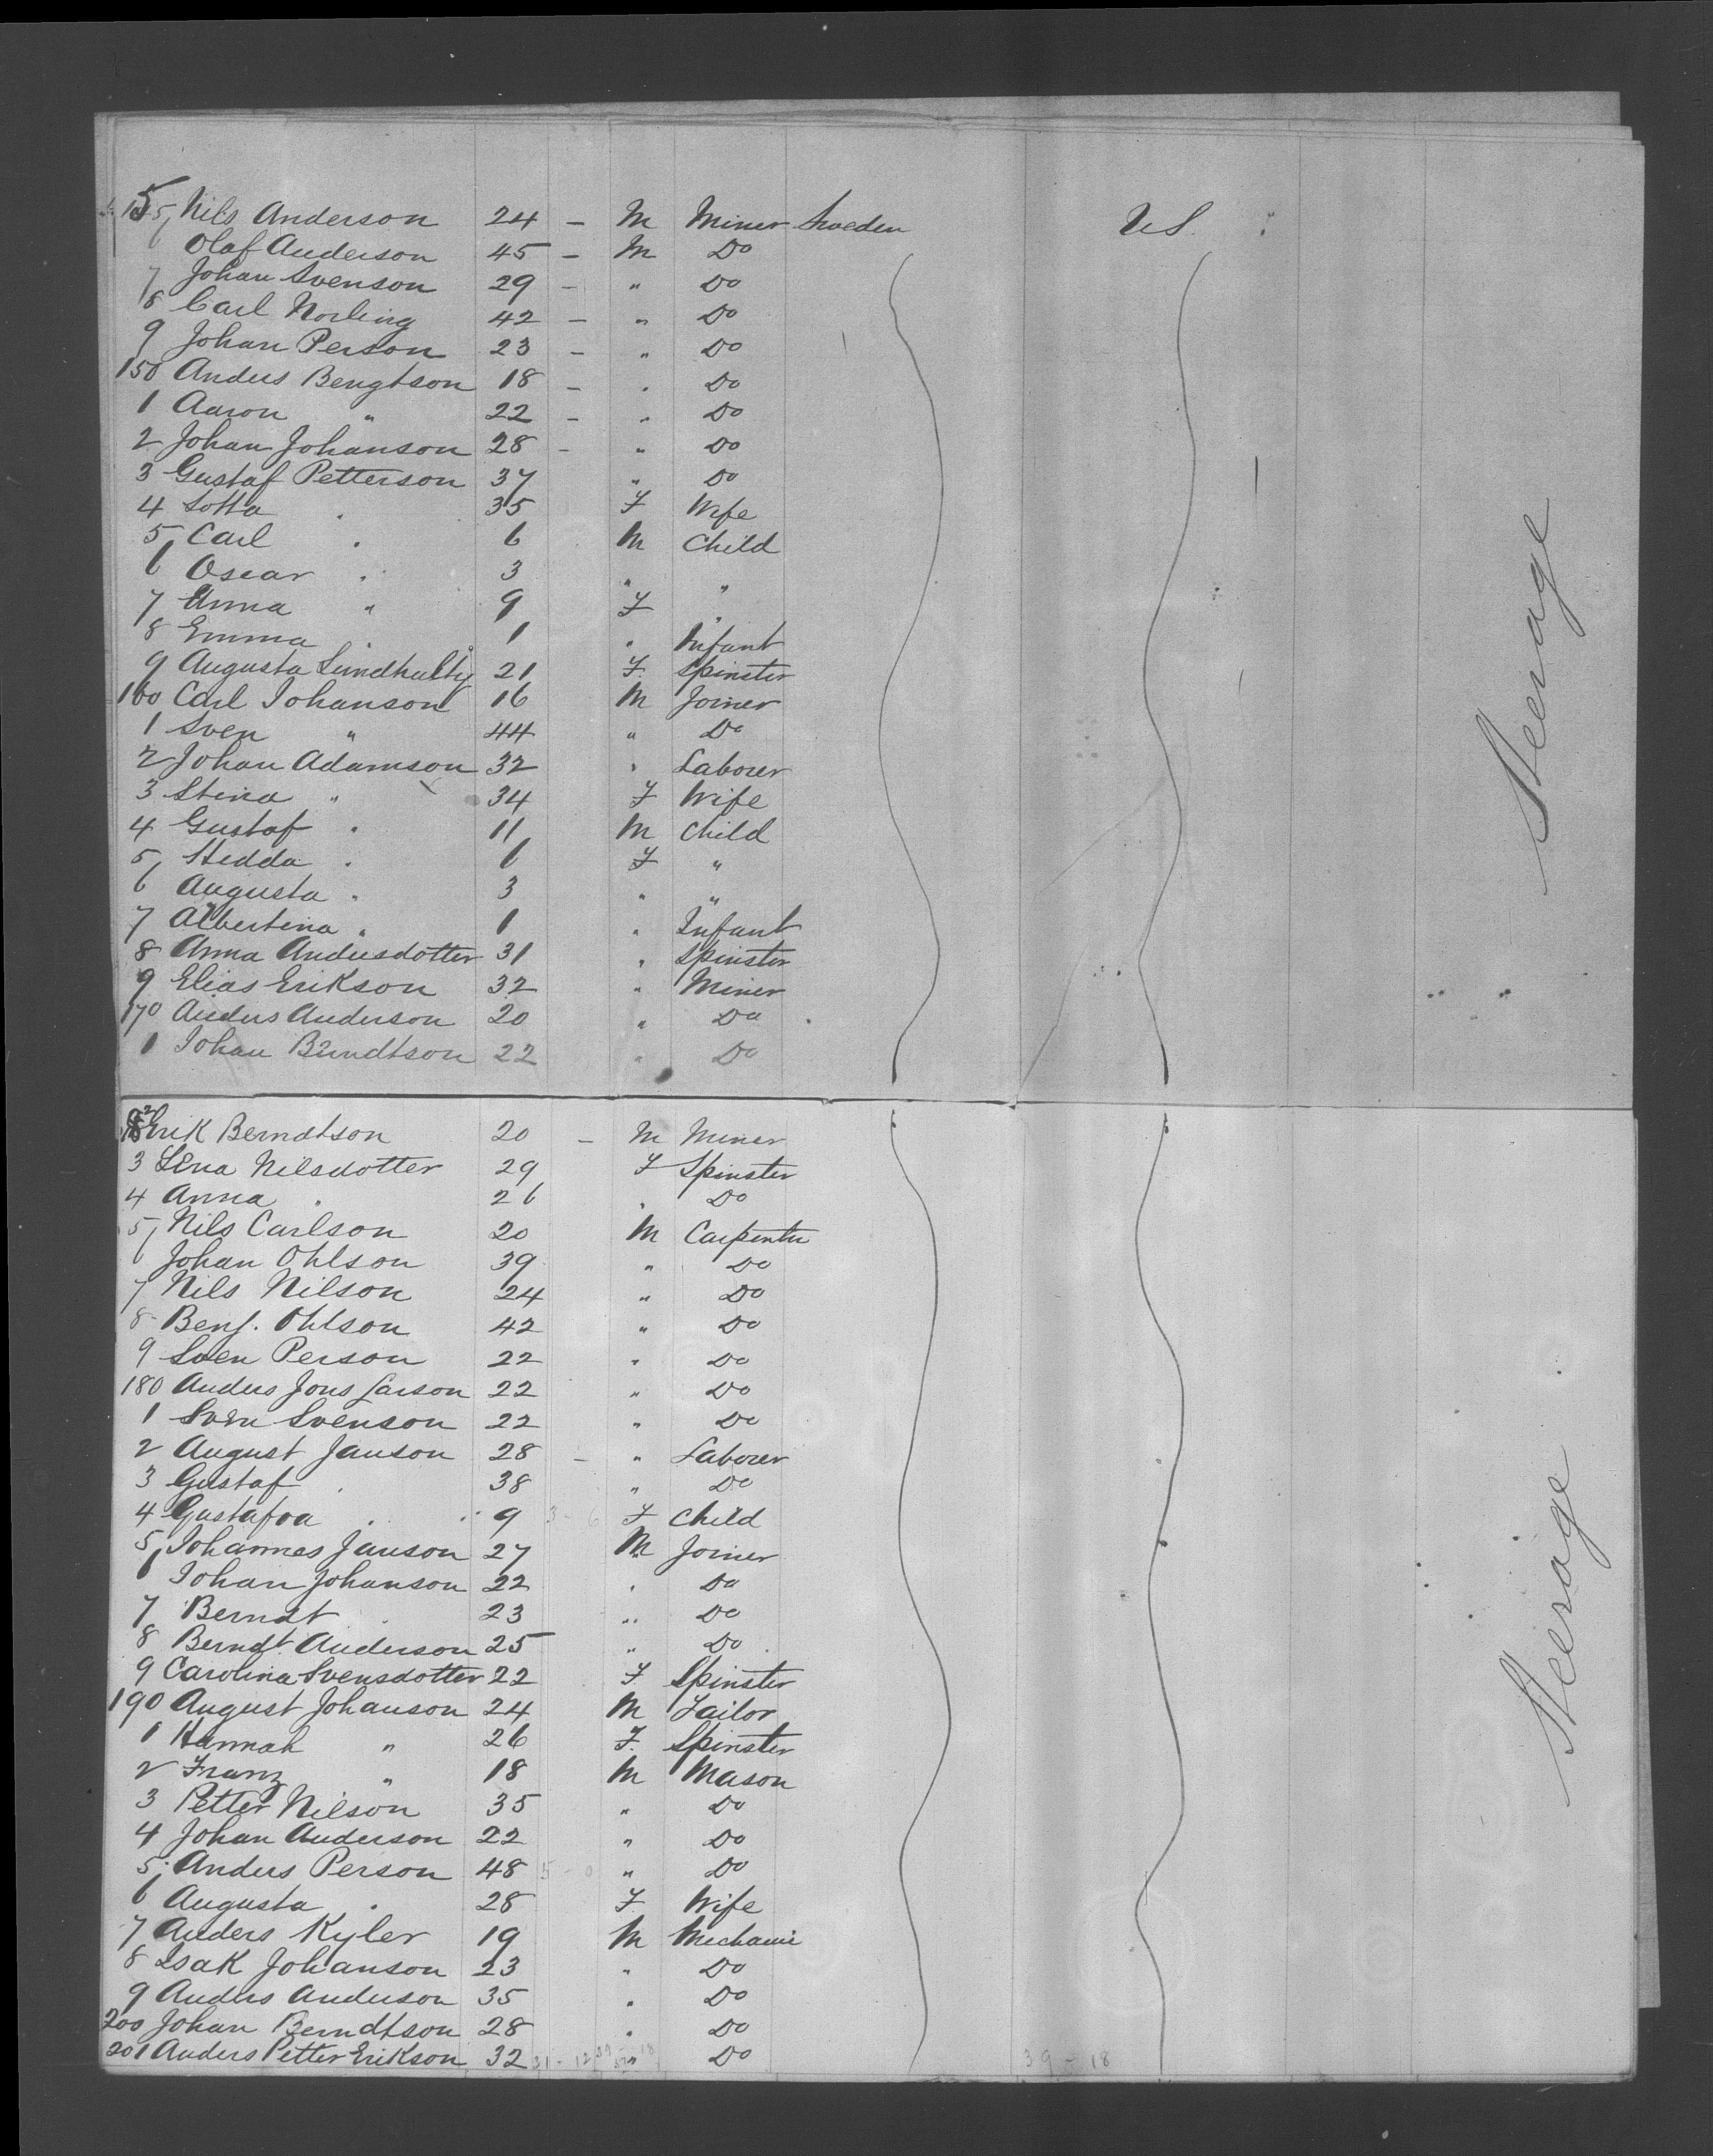 5 Nils Anderson 24 – M Miner Sweden U.S.
6 Olaf Anderson 45 – M Do
7 Johan Svenson 29 – " Do
8 Carl Norling 42 – " Do
9 Johan Person 23 – " Do
150 Anders Bengtson 18 – " Do
1 Aaron " 22 – " Do
2 Johan Johanson 28 – " Do
3 Gustaf Petterson 37 " Do
4 Lotta " 35 F Wife
5 Carl " 6 M Child
6 Oscar " 3 " "
7 Anna " 9 F "
8 Emma " 1 " Infant
9 Augusta 21 F. Spinster
160 Carl Johanson 16 M Joiner
1 Sven " 44 " Do
2 Johan Adamson 32 " Laborer
3 Stina " 34 F Wife
4 Gustaf " 11 M Child
5 Hedda " 6 F "
6 Augusta " 3 " "
7 Albertina " 1 " Infant
8 Anna Andersdotter 31 " Spinster
9 Elias Erikson 32 " Miner
170 Anders Anderson 20 " Do
1 Johan Berndtson 22 " Do
Steerage
2 Erik Berndtson 20 – M Miner
3 Lena Nilsdotter 29 F Spinster
4 Anna " 26 " Do
5 Nils Carlson 20 M Carpenter
6 Johan Ohlson 39 " Do
7 Nils Nilson 24 " Do
8 Benj. Ohlson 42 " Do
9 Sven Person 22 " Do
180 Anders Jons Larson 22 " Do
1 Sven Svenson 22 " Do
2 August Janson 28 – " Laborer
3 Gustaf " 38 " Do
4 Gustafva " 9 3 - 6 F Child
5 Johannes Janson 27 M Joiner
6 Johan Johanson 22 " Do
7 Berndt " 23 " Do
8 Berndt Anderson 25 " Do
9 Carolina Svensdotter 22 F Spinster
190 August Johanson 24 M Tailor
1 Hannah " 26 F. Spinster
2 Franz " 18 M Mason
3 Petter Nilson 35 " Do
4 Johan Anderson 22 " Do
5 Anders Person 48 5 - 0 " Do
6 Augusta " 28 F Wife
7 Anders Kyler 19 M Mechanic
8 Isak Johanson 23 " Do
9 Anders Anderson 35 " Do
200 Johan Berndtson 28 " Do
201 Anders Petter Erikson 32 31 - 12 " Do 39 - 18
Steerage